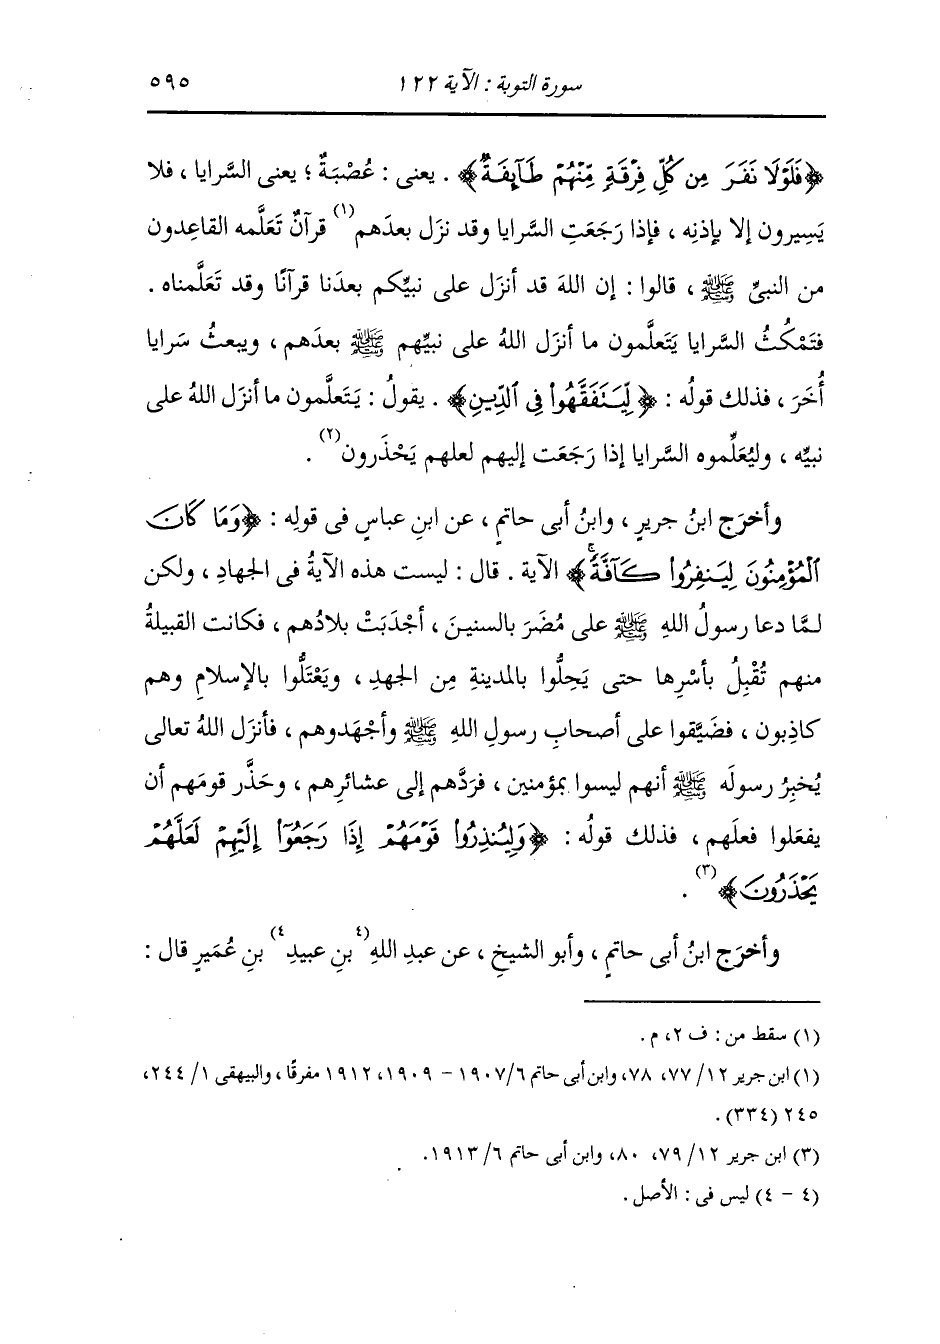 سورة التوبة : الآية ١٢٢ ٥٩٥
﴿فَلَوْلَا نَفَرَ مِن كُلِّ فِرْقَةٍ مِّنْهُمْ طَآئِفَةٌ﴾ . يعنى : عُصْبَةٌ ؛ يعنى السَّرايا ، فلا
يَسِيرون إلا بإذنِه ، فإذا رَجَعَتِ السَّرايا وقد نزل بعدَهم(١) قرآنٌ تَعَلَّمه القاعِدون
من النبىِّ ﷺ ، قالوا : إن اللهَ قد أنزَل على نبيِّكم بعدَنا قرآنًا وقد تَعَلَّمناه .
فتَمْكُثُ السَّرايا يَتَعلَّمون ما أنزَل اللهُ على نبيِّهم ﷺ بعدَهم ، ويبعثُ سَرايا
أُخَرَ ، فذلك قولُه : ﴿لِّيَتَفَقَّهُوا۟ فِى ٱلدِّينِ﴾ . يقولُ : يَتَعلَّمون ما أنزَل اللهُ على
نبيِّه ، وليُعَلِّموه السَّرايا إذا رَجَعَت إليهم لعلهم يَحْذَرون(٢) .
وأخرَج ابنُ جريرٍ ، وابنُ أبى حاتمٍ ، عن ابنِ عباسٍ فى قولِه : ﴿وَمَا كَانَ
ٱلْمُؤْمِنُونَ لِيَنفِرُوا۟ كَآفَّةً ۚ﴾ الآية . قال : ليست هذه الآيةُ فى الجهادِ ، ولكن
لمَّا دعا رسولُ اللهِ ﷺ على مُضَرَ بالسنينَ ، أجْدَبَتْ بلادُهم ، فكانت القبيلةُ
منهم تُقْبِلُ بأسْرِها حتى يَحِلُّوا بالمدينةِ مِن الجهدِ ، ويَعْتَلُّوا بالإسلامِ وهم
كاذِبون ، فضَيَّقوا على أصحابِ رسولِ اللهِ ﷺ وأجْهَدوهم ، فأنزَل اللهُ تعالى
يُخبِرُ رسولَه ﷺ أنهم ليسوا بمؤمنين ، فرَدَّهم إلى عشائرِهم ، وحَذَّر قومَهم أن
يفعَلوا فعلَهم ، فذلك قولُه : ﴿وَلِيُنذِرُوا۟ قَوْمَهُمْ إِذَا رَجَعُوٓا۟ إِلَيْهِمْ لَعَلَّهُمْ
يَحْذَرُونَ﴾(٣) .
وأخرَج ابنُ أبى حاتمٍ ، وأبو الشيخِ ، عن عبدِ اللهِ (٤بنِ عبيدِ٤) بنِ عُمَيرٍ قال :
(١) سقط من : ف ٢، م .
(١) ابن جرير ١٢/ ٧٧، ٧٨، وابن أبى حاتم ٦/ ١٩٠٧ - ١٩٠٩، ١٩١٢ مفرقًا، والبيهقى ١/ ٢٤٤،
٢٤٥ (٣٣٤) .
(٣) ابن جرير ١٢/ ٧٩، ٨٠، وابن أبى حاتم ٦/ ١٩١٣.
(٤ - ٤) ليس فى : الأصل .